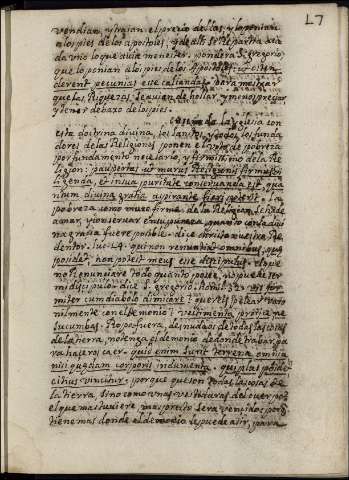 L7
vendian, y traian el precio dellas, y lo ponian
a los pies de los apostoles, y de alli se repartia a ca
da uno lo que avia menester. pondera S. gregorio,
que lo ponian a los pies de los Apostoles ut osten
derent pecunias esse calcandas para mostrar
que las Riquezas se avian de hollar, y menospreciar
y tener debaxo de los pies.
la iglesia con
esta doctrina divina, los santos, y todos los funda
dores de las Religiones ponen el voto de pobreza
por fundamento necesario, y firmissimo de la Re
ligion: paupertas ut murus Religionis firmus dili
genda, et in sua puritate conservanda est, qua
ntum divina gratia aspirante fieri poterit. La
pobreza como muro firme de la Religion, se ha de
amar, y conservar en su pureza quanto con la divi
na gracia fuere posible. dice christo nuestro Re
dentor. luc. 14. qui non renuntiat omnibus, quæ
possidet, non potest meus esse discipulus. el que
no Renunciare todo quanto posee, no puede ser
mi discipulo. dice S. gregorio. homil. 32. vis for
miter cum diabolo dimicare? quereis pelear varo
nilmente con el Demonio? vestimenta projice ne
sucumbas. Ropas fuera, desnudaos de todas las cosas
de la tierra, no tenga el demonio de donde trabar, pa
ra hazeros caer. quid enim sunt terrena omnia
nisi quædam corporis indumenta. qui plus possidet
citius vincitur. porque que son todas las cosas de
la tierra, sino como unas vestiduras del cuerpo?
el que mas tuviere mas presto sera vencido; porq
tiene mas donde el demonio le puede asir, para